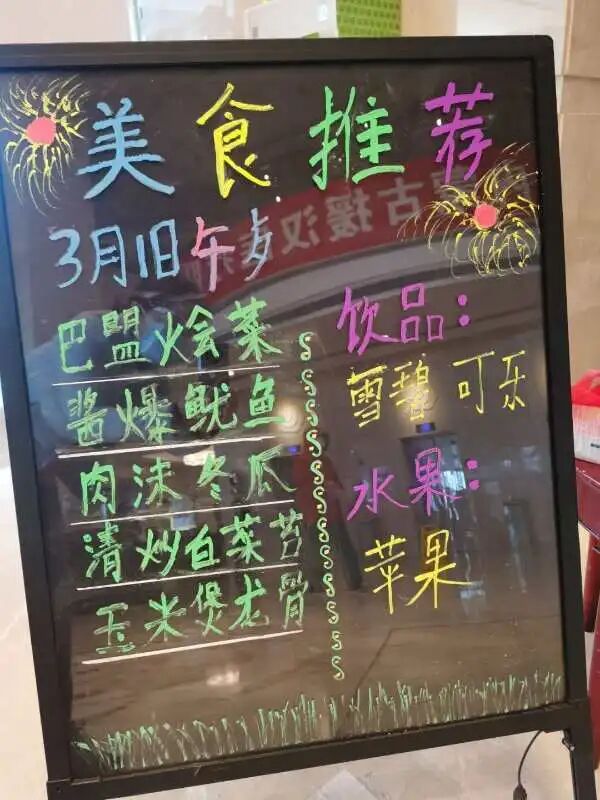 美食推荐
3月1日午歺
巴盟烩菜
酱爆鱿鱼
肉沫冬瓜
清炒白菜苔
玉米煲龙骨
饮品：
雪碧 可乐
水果：
苹果